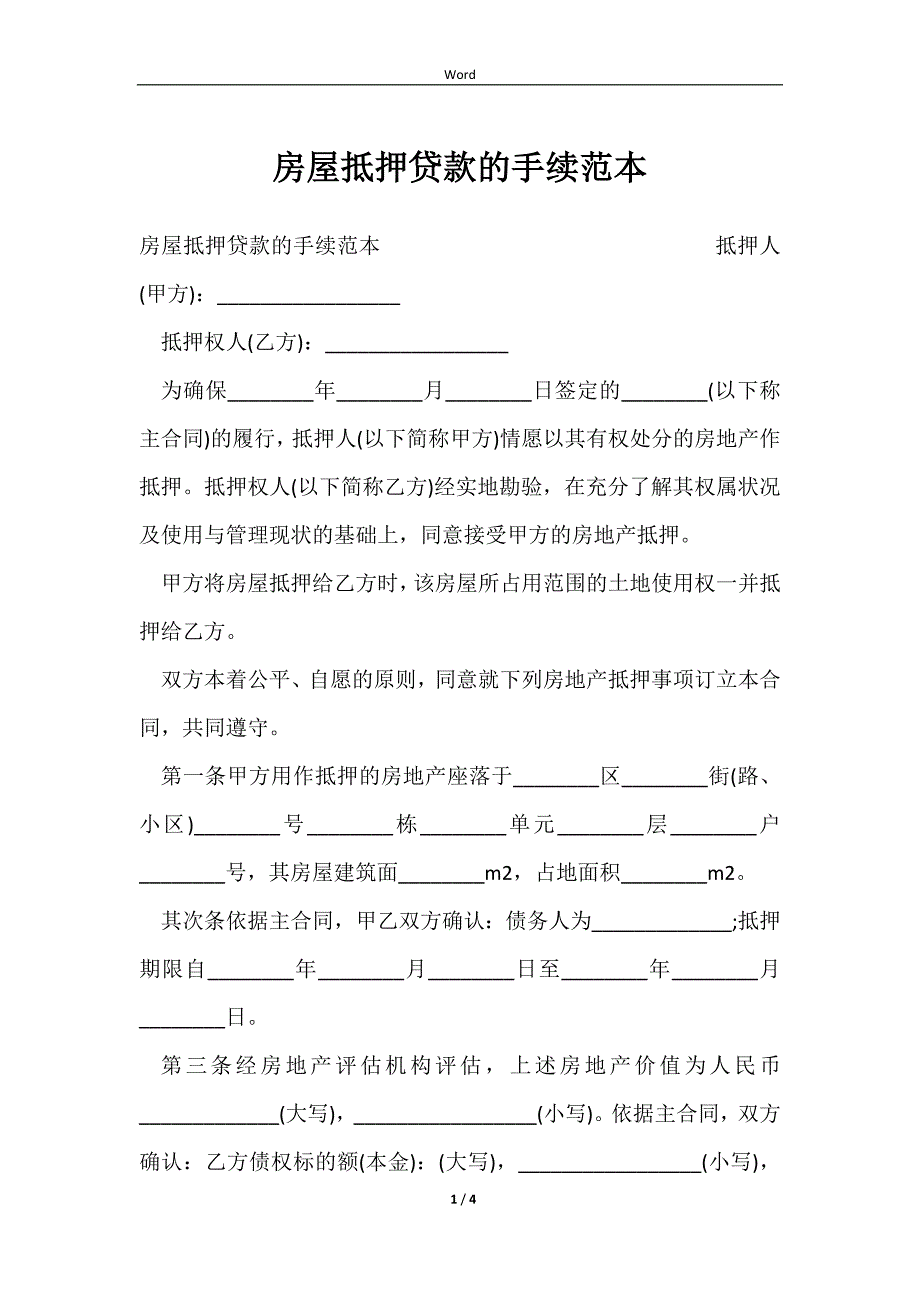 Word
房屋抵押贷款的手续范本
房屋抵押贷款的手续范本 抵押人
(甲方)：_________________
抵押权人(乙方)：_________________
为确保________年________月________日签定的________(以下称
主合同)的履行，抵押人(以下简称甲方)情愿以其有权处分的房地产作
抵押。抵押权人(以下简称乙方)经实地勘验，在充分了解其权属状况
及使用与管理现状的基础上，同意接受甲方的房地产抵押。
甲方将房屋抵押给乙方时，该房屋所占用范围的土地使用权一并抵
押给乙方。
双方本着公平、自愿的原则，同意就下列房地产抵押事项订立本合
同，共同遵守。
第一条甲方用作抵押的房地产座落于________区________街(路、
小区)________号________栋________单元________层________户
________号，其房屋建筑面________m2，占地面积________m2。
其次条依据主合同，甲乙双方确认：债务人为_____________;抵押
期限自________年________月________日至________年________月
________日。
第三条经房地产评估机构评估，上述房地产价值为人民币
_____________(大写)，_________________(小写)。依据主合同，双方
确认：乙方债权标的额(本金)：(大写)，_________________(小写)，
1 / 4